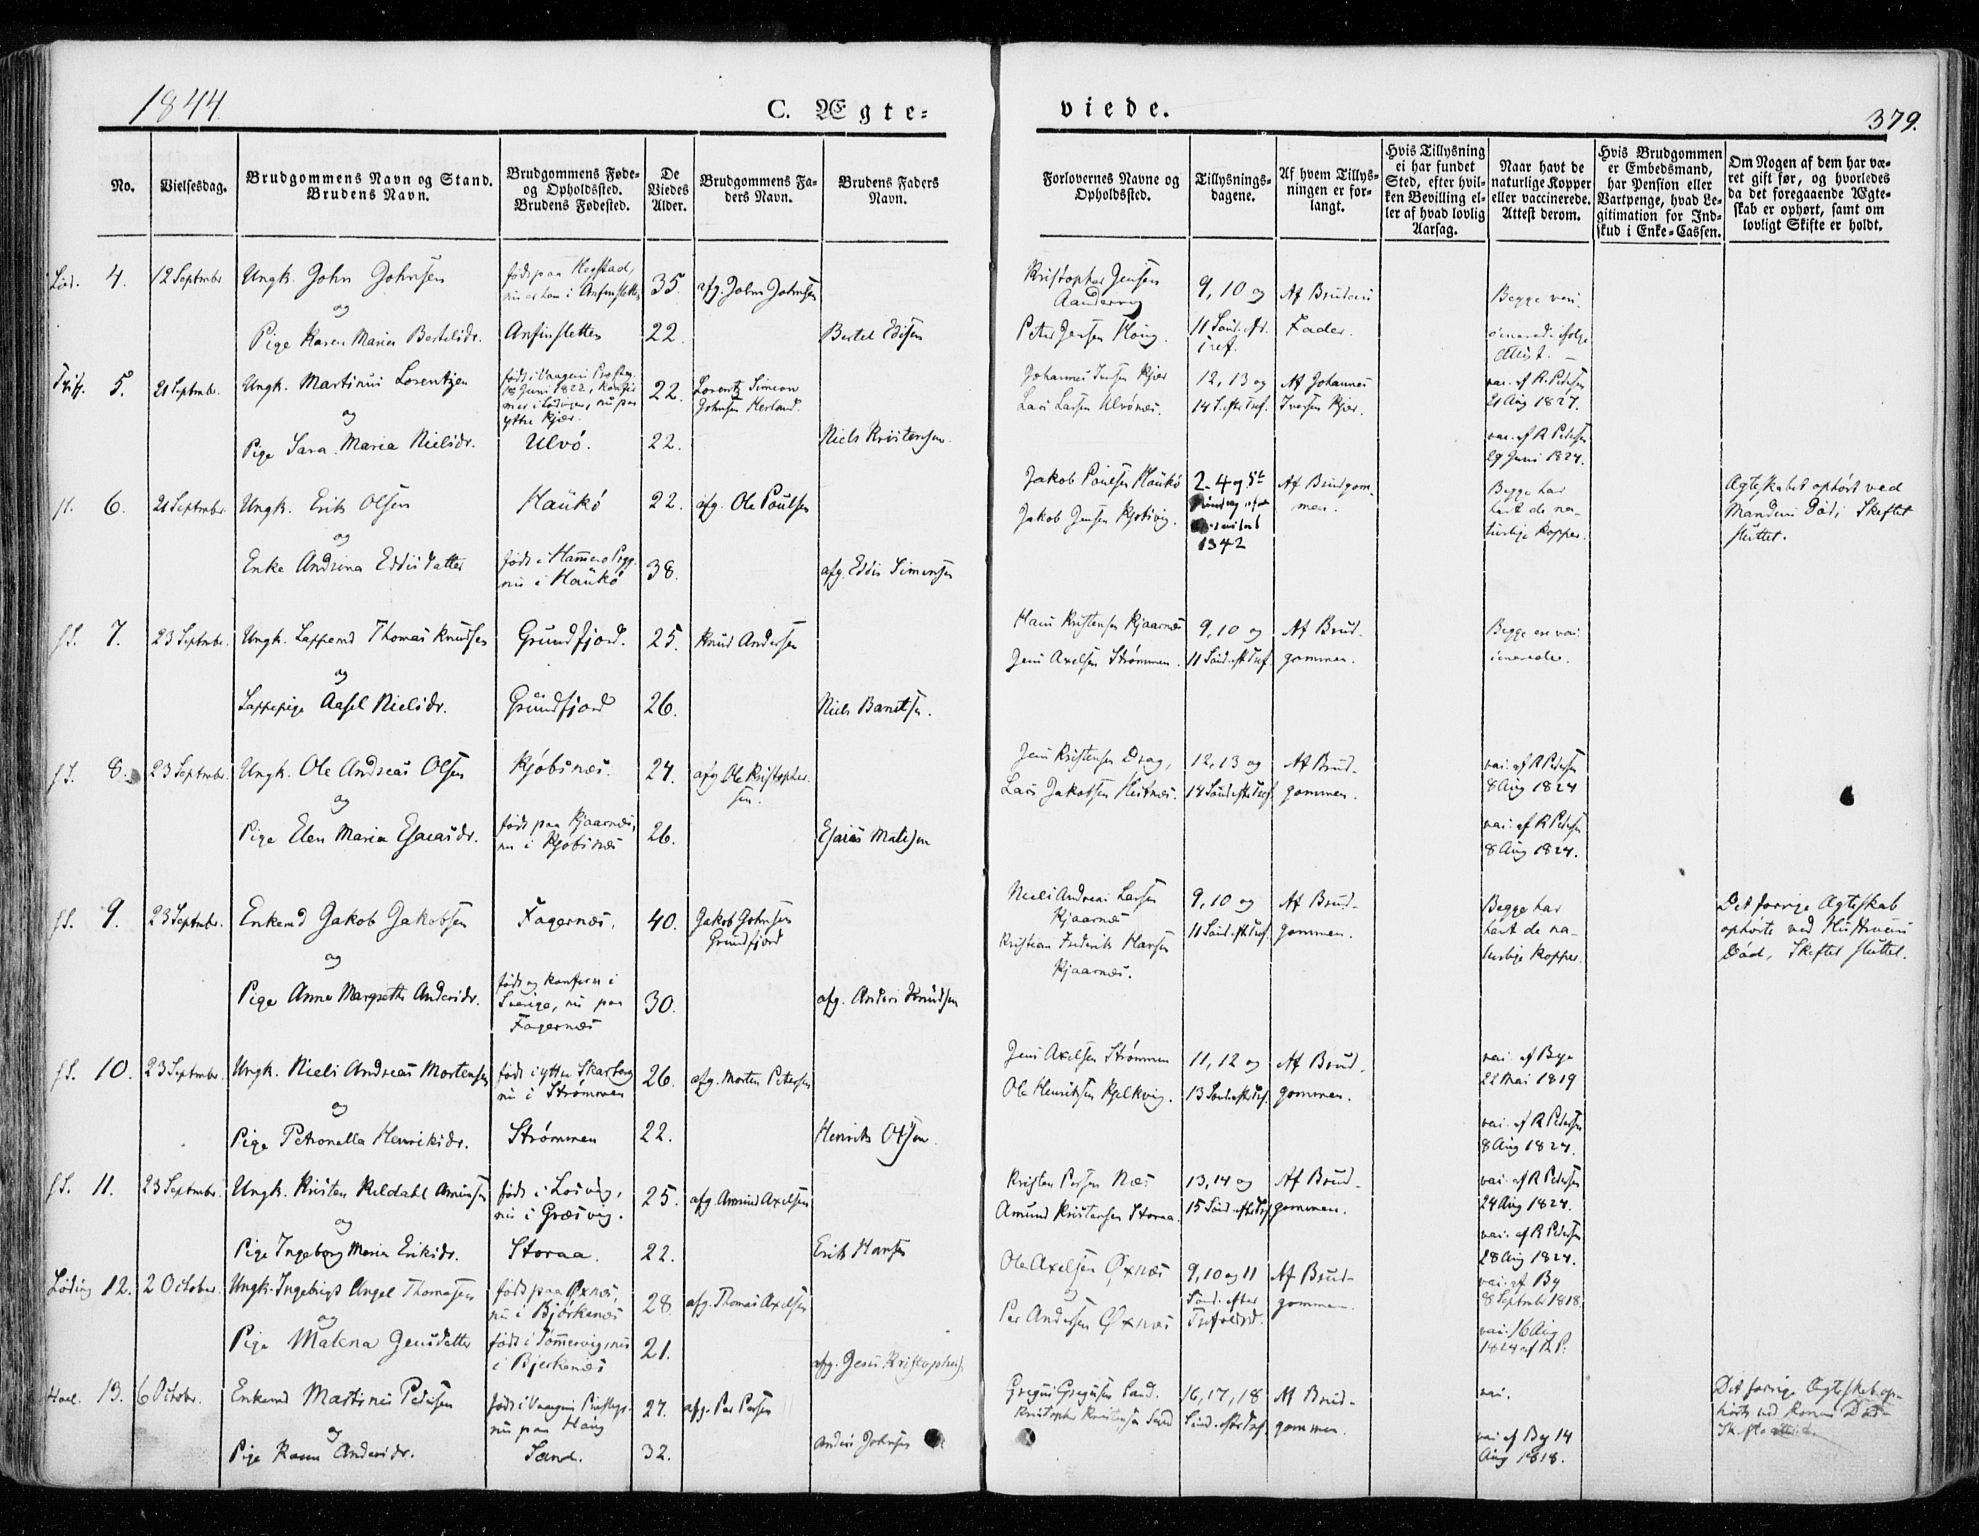 1844.
C. Ægte=
viede.
379.
No.
Vielsesdag.
Brudgommens Navn og Stand.
Brudens Navn.
Brudgommens Føde=
og Opholdssted.
Brudens Fødested.
De
Viedes
Alder.
Brudgommens Fa=
ders Navn.
Brudens Faders
Navn.
Forlovernes Navne og
Opholdssted.
Tillysnings=
dagene.
Af hvem Tillys=
ningen er for=
langt.
Hvis Tillysning
ei har fundet
Sted, efter hvil=
ken Bevilling el=
ler af hvad lovlig
Aarsag.
Naar havt de
naturlige Kopper
eller vaccinerede.
Attest derom.
Hvis Brudgommen
er Embedsmand,
har Pension eller
Vartpenge, hvad Le=
gitimation for Ind=
skud i Enke=Cassen.
Om Nogen af dem har væ=
ret gift før, og hvorledes
da det foregaaende Ægte=
skab er ophørt, samt om
lovligt Skifte er holdt.
Lød. 4. 12 Septmbr. Ungk. John Johnsen
og
Pige Karen Maria Bertelsdr.
født paa Kegstad,
Anfinsletten
35.
22.
afg. John Johnsen
Bertel Edisen
Kristopher Jensen
Aandervog
Peter Jensen Houg.
9, 10 og
11 Sønd. eft.
Tref.
Af Brudens
Fader.
Begge vac-
cinered. ifølge
Attest.
5. 21 Septmbr. Ungk. Martinus Lorentzen
og
Pige Sara Maria Nielsdr.
18 Juni 1822,
nu paa
ytre Kjær.
Ulvö.
22.
22.
Lorentz Simon
Johnsen Herland.
Niels Kristensen.
Johannes Iversen Kjær
Lars Larsen Ulvönæs.
12, 13 og
14 S. efter Tref.
Af Johannes
Iversen Kjær.
vac. af R. Pedersen
21 Aug 1827.
vac. af R Pedersen
29 Juni 1824.
6. 21 Septmbr. Ungk. Erik Olsen
og
Enke Andrina Eddisdatter
Haukö
født i Hammerö Prgj.
nu i Haukö
22.
38.
afg. Ole Poulsen
afg. Eddis Simonsen
Jakob Poulsen Haukö
Jakob Jensen Kjobsvig.
2-4 og 5te
1842
Af Brudgom-
men.
Begge har
havt de na-
turlige Kopper.
Ægteskabet ophørt ved
Mandens Død; Skiftet
sluttet.
7. 23 Septmbr. Ungk. Lappemd Thomas Knudsen
og
Lappepige Aasel Nielsdr.
Grundfjord.
Grundfjord
25.
26.
Knud Andersen
Niels Bandtsen.
Hans Kristensen Kjaarnæs
Jens Axelsen Strømmen.
9, 10 og
11 Sønd. eft Tref.
Af Brud-
gommen.
Begge ere vac-
cinerede.
8. 23 Septmbr. Ungk. Ole Andreas Olsen
og
Pige Elen Maria Esaiasdr.
Kjøbsnæs.
født paa Kjaarnæs,
nu i Kjøbsnæs
24.
26.
afg Ole Kristopher-
sen.
Esaias Matisen
Jens Kristensen Drag,
Lars Jakobsen Heitnæs.
12, 13 og
14 Sønd. eft. Tref.
Af Brud-
gommen.
vac. af R Pedersen
8 Aug 1824
vac. af R Pedersen
8 Aug 1824.
9. 23 Septmbr. Enkemd Jakob Jakobsen
og
Pige Anna Margrethe Andersdr.
Fagernæs.
født og konfirm i
Sverige, nu paa
Fagernæs
40.
30.
Jakob Johnsen
Grundfjord
afg. Anders Knudsen
Niels Andreas Larsen
Kjaarnæs
Kristian Frederik Hansen
Kjaarnæs.
9, 10 og
11 Sønd. eft. Tref.
Af Brud-
gommen.
Begge har
havt de na-
turlige Kopper.
Det forrige Ægteskab
ophørte ved Hustruens
Død, Skiftet sluttet.
10. 23 Septmbr. Ungk. Niels Andreas Mortensen
og
Pige Petronella Henriksdr.
født i ytre Skarberg
nu i Strømmen
Strømmen
26.
22.
afg. Morten Petersen
Henrik Olsen
Jens Axelsen Strømmen
Ole Henriksen Kjelkvig.
11, 12 og
13 Sønd. eft. Tref.
Af Brud-
gommen.
vac. af Bye
22 Mai 1819
vac. af R Pedersen
8 Aug 1824.
11. 23 Septmbr. Ungk. Kristen Kildahl Amundsen
og
Pige Ingeborg Maria Eriksdr.
født i Losvig,
nu i Græsvig.
Storaa.
25.
22.
afg Amund Axelsen
Erik Hansen
Kristen Persen Næs
Amund Kristensen Storaa.
13, 14 og
15 Sønd. eft. Tref.
Af Brud-
gommen.
vac. af R Pedersen
24 Aug 1824.
vac. af R Pedersen
28 Aug 1824.
Løding 12. 2 October. Ungk. Ingebrigt Angel Thomasen
og
Pige Malena Jensdatter
født paa Øxnæs,
nu i Bjørkenæs
født i Tømmervig, nu
i Bjerkenæs
28
21.
afg. Thomas Axelsen
afg. Jens Kristophers.
Ole Axelsen Øxnæs
og
Per Andersen Øxnæs
9, 10 og 11
Sønd. efter
Trefoldsd.
Af Brud-
gommen.
vac. af By
8 Septmbr 1818.
vac. 16 Aug
1824 af R P.
13. 6 Octobr. Enkemd Martinus Pedersen
og
Pige Andersdr.
nu paa Haug
Sand.
27.
32.
afg. Per Persen
Anders Johnsen
Gregus Gregusen Sand.
Kristopher Kristensen Sand
16, 17, 18
Sønd. efter Tref.
Af Brud-
gommen.
vac.
vac af By 14
Aug 1818.
Det forrige Ægteskab op-
hørte ved Konens Død